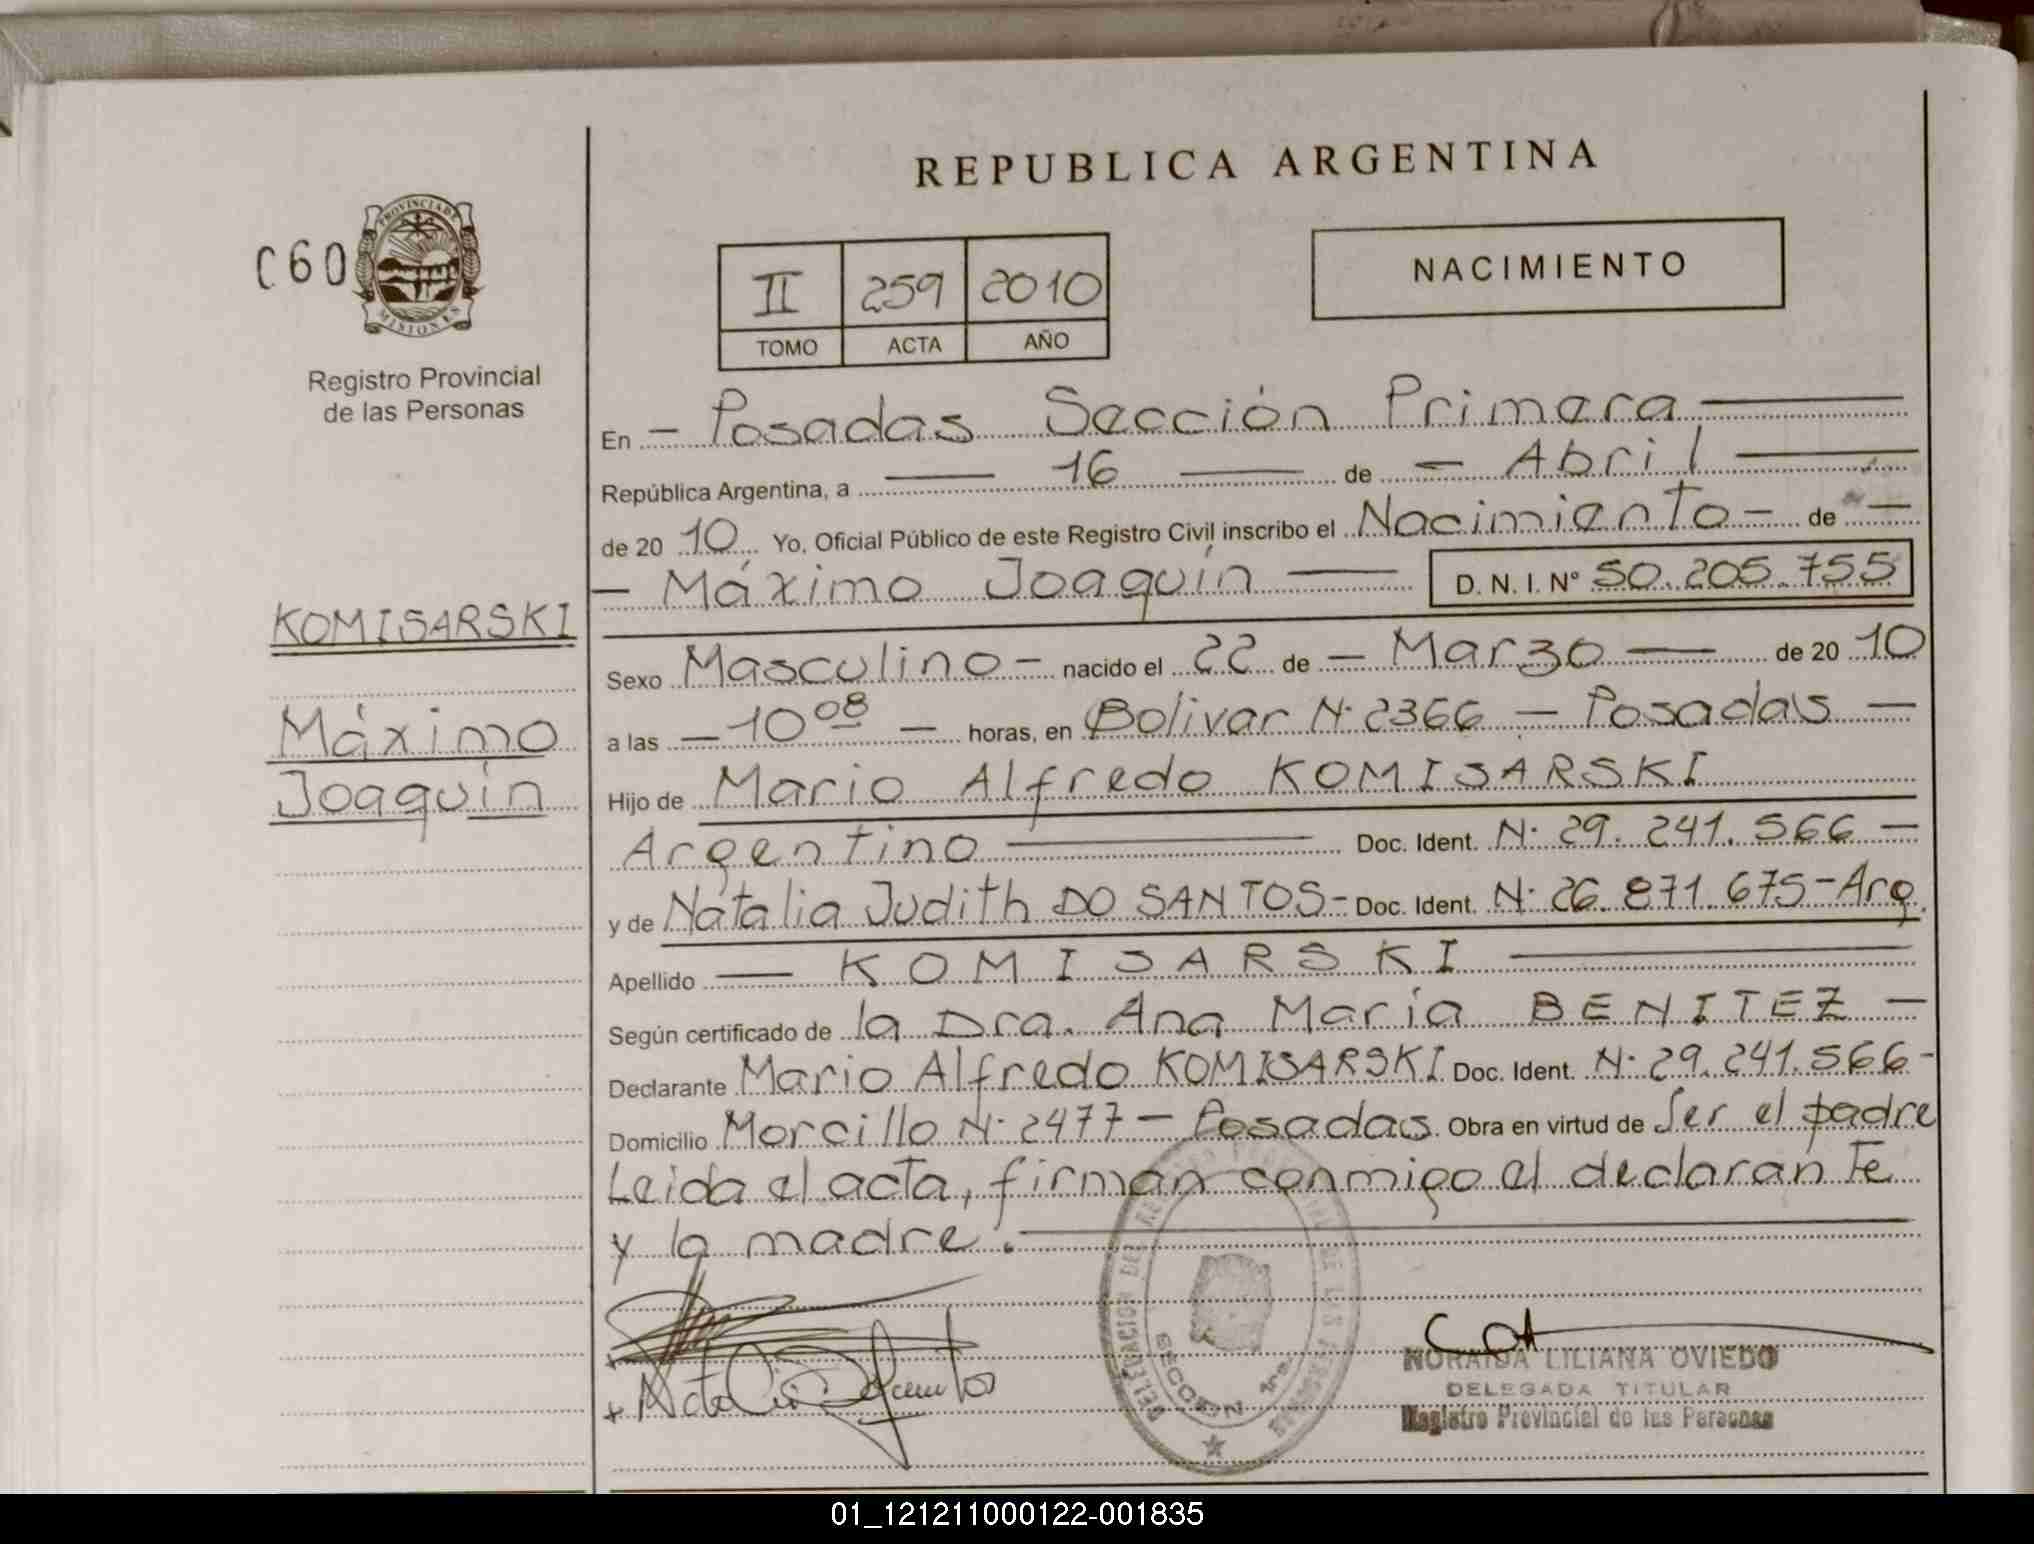 REPUBLICA ARGENTINA
C60
PROVINCIA DE
MISIONES
Registro Provincial
de las Personas
II 259 2010
TOMO ACTA AÑO
NACIMIENTO
En - Posadas Sección Primera
República Argentina, a 16 de - Abril
de 20 10 Yo, Oficial Público de este Registro Civil inscribo el Nacimiento - de -
- Máximo Joaquín D. N. I. N° 50.205.755
KOMISARSKI
Máximo
Joaquín
Sexo Masculino - nacido el 22 de - Marzo de 20 10
a las - 10 08 - horas, en Bolivar N· 2366 - Posadas -
Hijo de Mario Alfredo KOMISARSKI
Argentino Doc. Ident. N· 29.241.566 -
y de Natalia Judith DO SANTOS - Doc. Ident. N· 26.871.675 - Arg.
Apellido KOMISARSKI
Según certificado de la Dra. Ana María BENITEZ -
Declarante Mario Alfredo KOMISARSKI Doc. Ident. N· 29.241.566 -
Domicilio Morcillo N· 2477 - Posadas. Obra en virtud de Ser el padre
Leida el acta, firman conmigo el declarante
y la madre.
DELEGACION DEL REGISTRO PROVINCIAL DE LAS PERSONAS
SECCION 1ra
NORAIDA LILIANA OVIEDO
DELEGADA TITULAR
Registro Provincial de las Personas
01_121211000122-001835